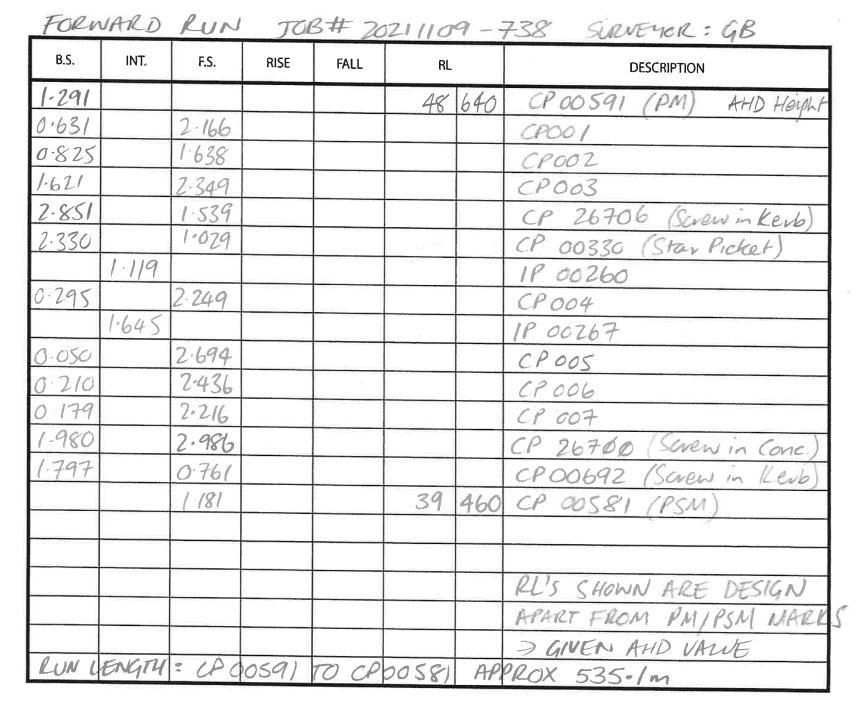 FORWARD RUN JOB# 20211109-738 SURVEYOR: GB
B.S. INT. F.S. RISE FALL RL DESCRIPTION
1.291 48 640 CP 00591 (PM) AHD Height
0.631 2.166 CP001
0.825 1.638 CP002
1.621 2.349 CP003
2.851 1.539 CP 26706 (Screw in Kerb)
2.330 1.029 CP 00330 (Star Picket)
1.119 IP 00260
0.295 2.249 CP004
1.645 IP 00267
0.050 2.694 CP 005
0.210 2.436 CP 006
0.179 2.216 CP 007
1.980 2.986 CP 26700 (Screw in Conc.)
1.797 0.761 CP00692 (Screw in Kerb)
1.181 39 460 CP 00581 (PSM)
RL'S SHOWN ARE DESIGN
APART FROM PM/PSM MARKS
→ GIVEN AHD VALUE
RUN LENGTH = CP00591 TO CP00581 APPROX 535.1m